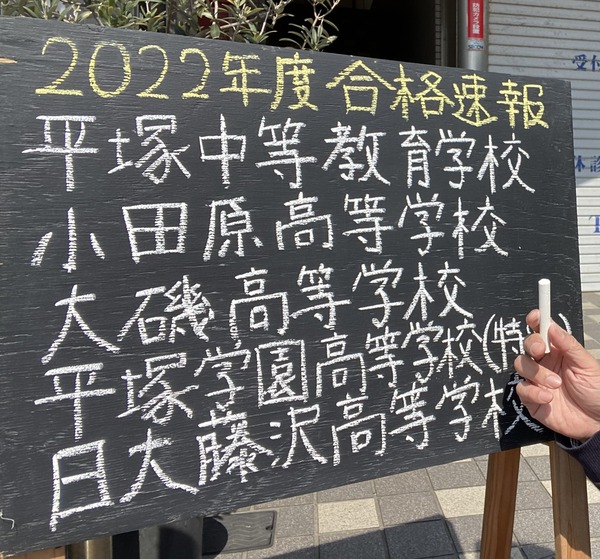 2022年度 合格速報
平塚中等教育学校
小田原高等学校
大磯高等学校
平塚学園高等学校(特
日大藤沢高等学校
受付
休診